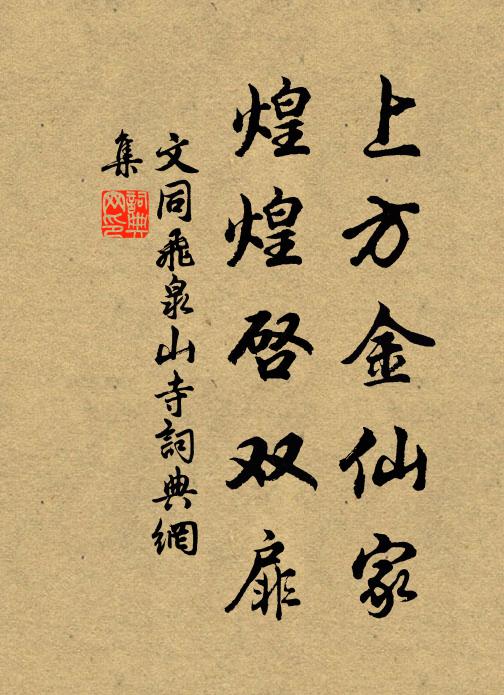 上方金仙家
煌煌启双扉
文同飛泉山寺詞典網
集
詞典网印